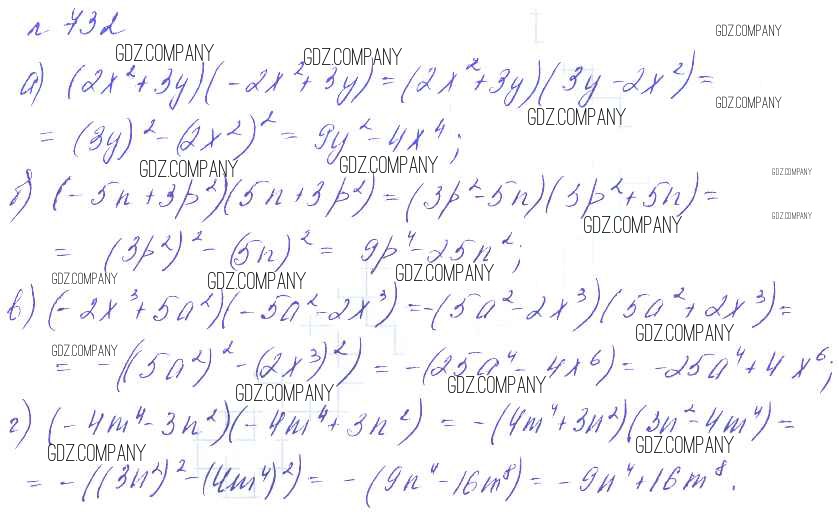 № 732
GDZ.COMPANY GDZ.COMPANY GDZ.COMPANY
а) (2x²+3y)(-2x²+3y)=(2x²+3y)(3y-2x²)=
GDZ.COMPANY GDZ.COMPANY
=(3y)²-(2x²)²=9y²-4x⁴;
GDZ.COMPANY GDZ.COMPANY GDZ.COMPANY
б) (-5n+3p²)(5n+3p²)=(3p²-5n)(3p²+5n)=
GDZ.COMPANY GDZ.COMPANY
=(3p²)²-(5n)²=9p⁴-25n²;
GDZ.COMPANY GDZ.COMPANY GDZ.COMPANY
в) (-2x³+5a²)(-5a²-2x³)=-(5a²-2x³)(5a²+2x³)=
GDZ.COMPANY GDZ.COMPANY
=-((5a²)²-(2x³)²)=-(25a⁴-4x⁶)=-25a⁴+4x⁶;
GDZ.COMPANY GDZ.COMPANY
г) (-4m⁴-3n²)(-4m⁴+3n²)=-(4m⁴+3n²)(3n²-4m⁴)=
GDZ.COMPANY GDZ.COMPANY
=-((3n²)²-(4m⁴)²)=-(9n⁴-16m⁸)=-9n⁴+16m⁸.